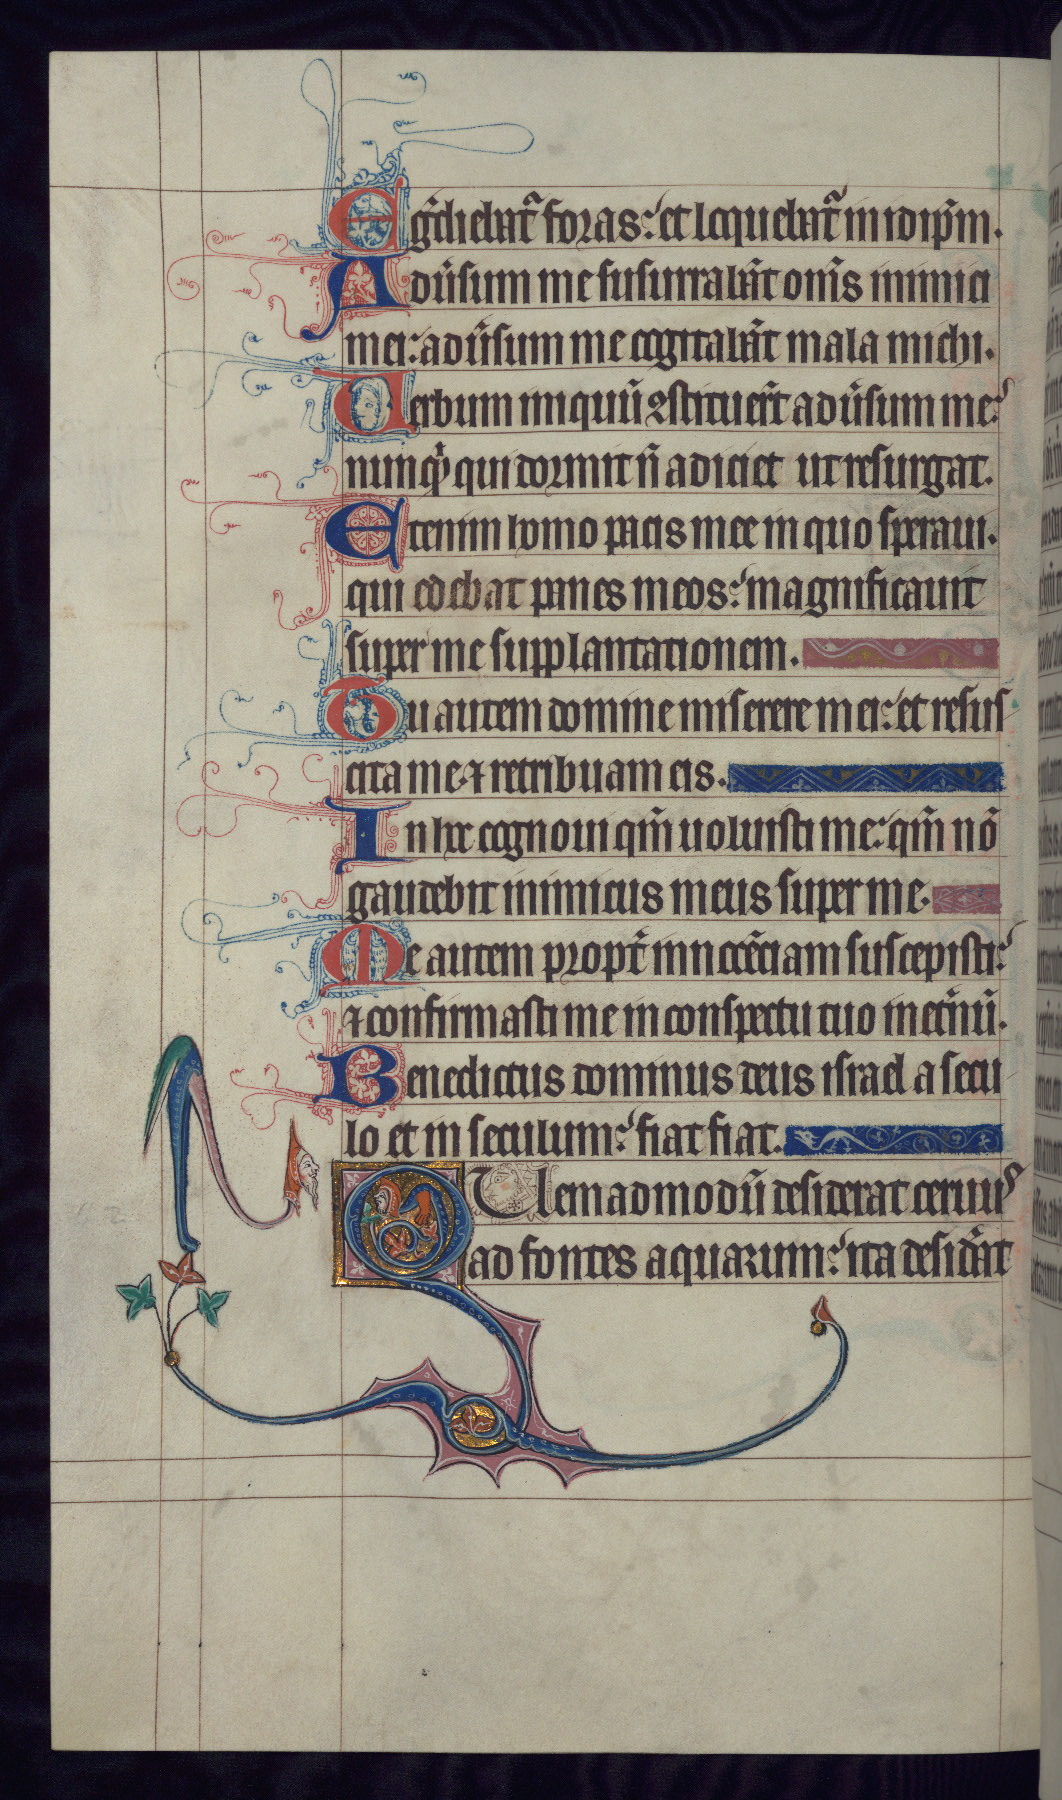 Egr̃diebat̃ foras: et loquebat̃ in idip̃m.
Adũsum me susurrabãt om̃s inimici
mei: adũsum me cogitabãt mala michi.
Verbum iniquũ ꝯstituer̃t adũsum me:
nunqͥ qui dormit ñ adiciet ut resurgat.
Etenim homo pacis mee in quo speraui.
qui edebat panes meos: magnificauit
super me supplantationem.
Tu autem domine miserere mei: et resus
cita me ⁊ retribuam eis.
In hoc cognoui qm̃ uoluisti me: qm̃ nõ
gaudebit inimicus meus super me.
Me autem propt̃ innocẽciam suscepisti:
⁊ confirmasti me in conspectu tuo in et̃nũ.
Benedictus dominus deus israel a secu
lo et in seculum: fiat fiat.
QUemadmodũ desiderat ceruuꝰ
ad fontes aquarum: ita desid̃at